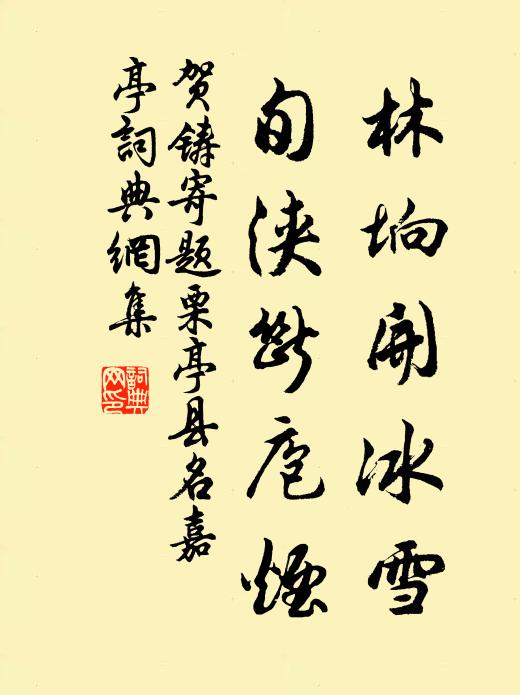 林坰開冰雪
旬浹斷庖煙
贺鑄寄题栗亭县名嘉
亭詞典網集
詞典網印